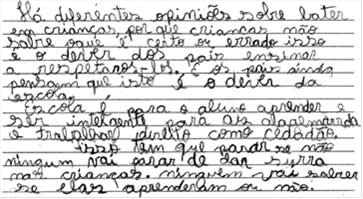 Há diferentes opiniões sobre bater
em crianças, por que crianças não
sabre oque é certo ou errado isso
é o dever dos pais ensinar
a respeitaros-los. E os pais ainda
pensam que isto é o dever da
escola.
Escola é para o aluno aprender e
ser inteligente para as
e direito como cidadão
isso tem que parar se não
ningum vai parar de dar surra
nas crianças. ninguém vai sabrer
se elas aprenderam ou não.